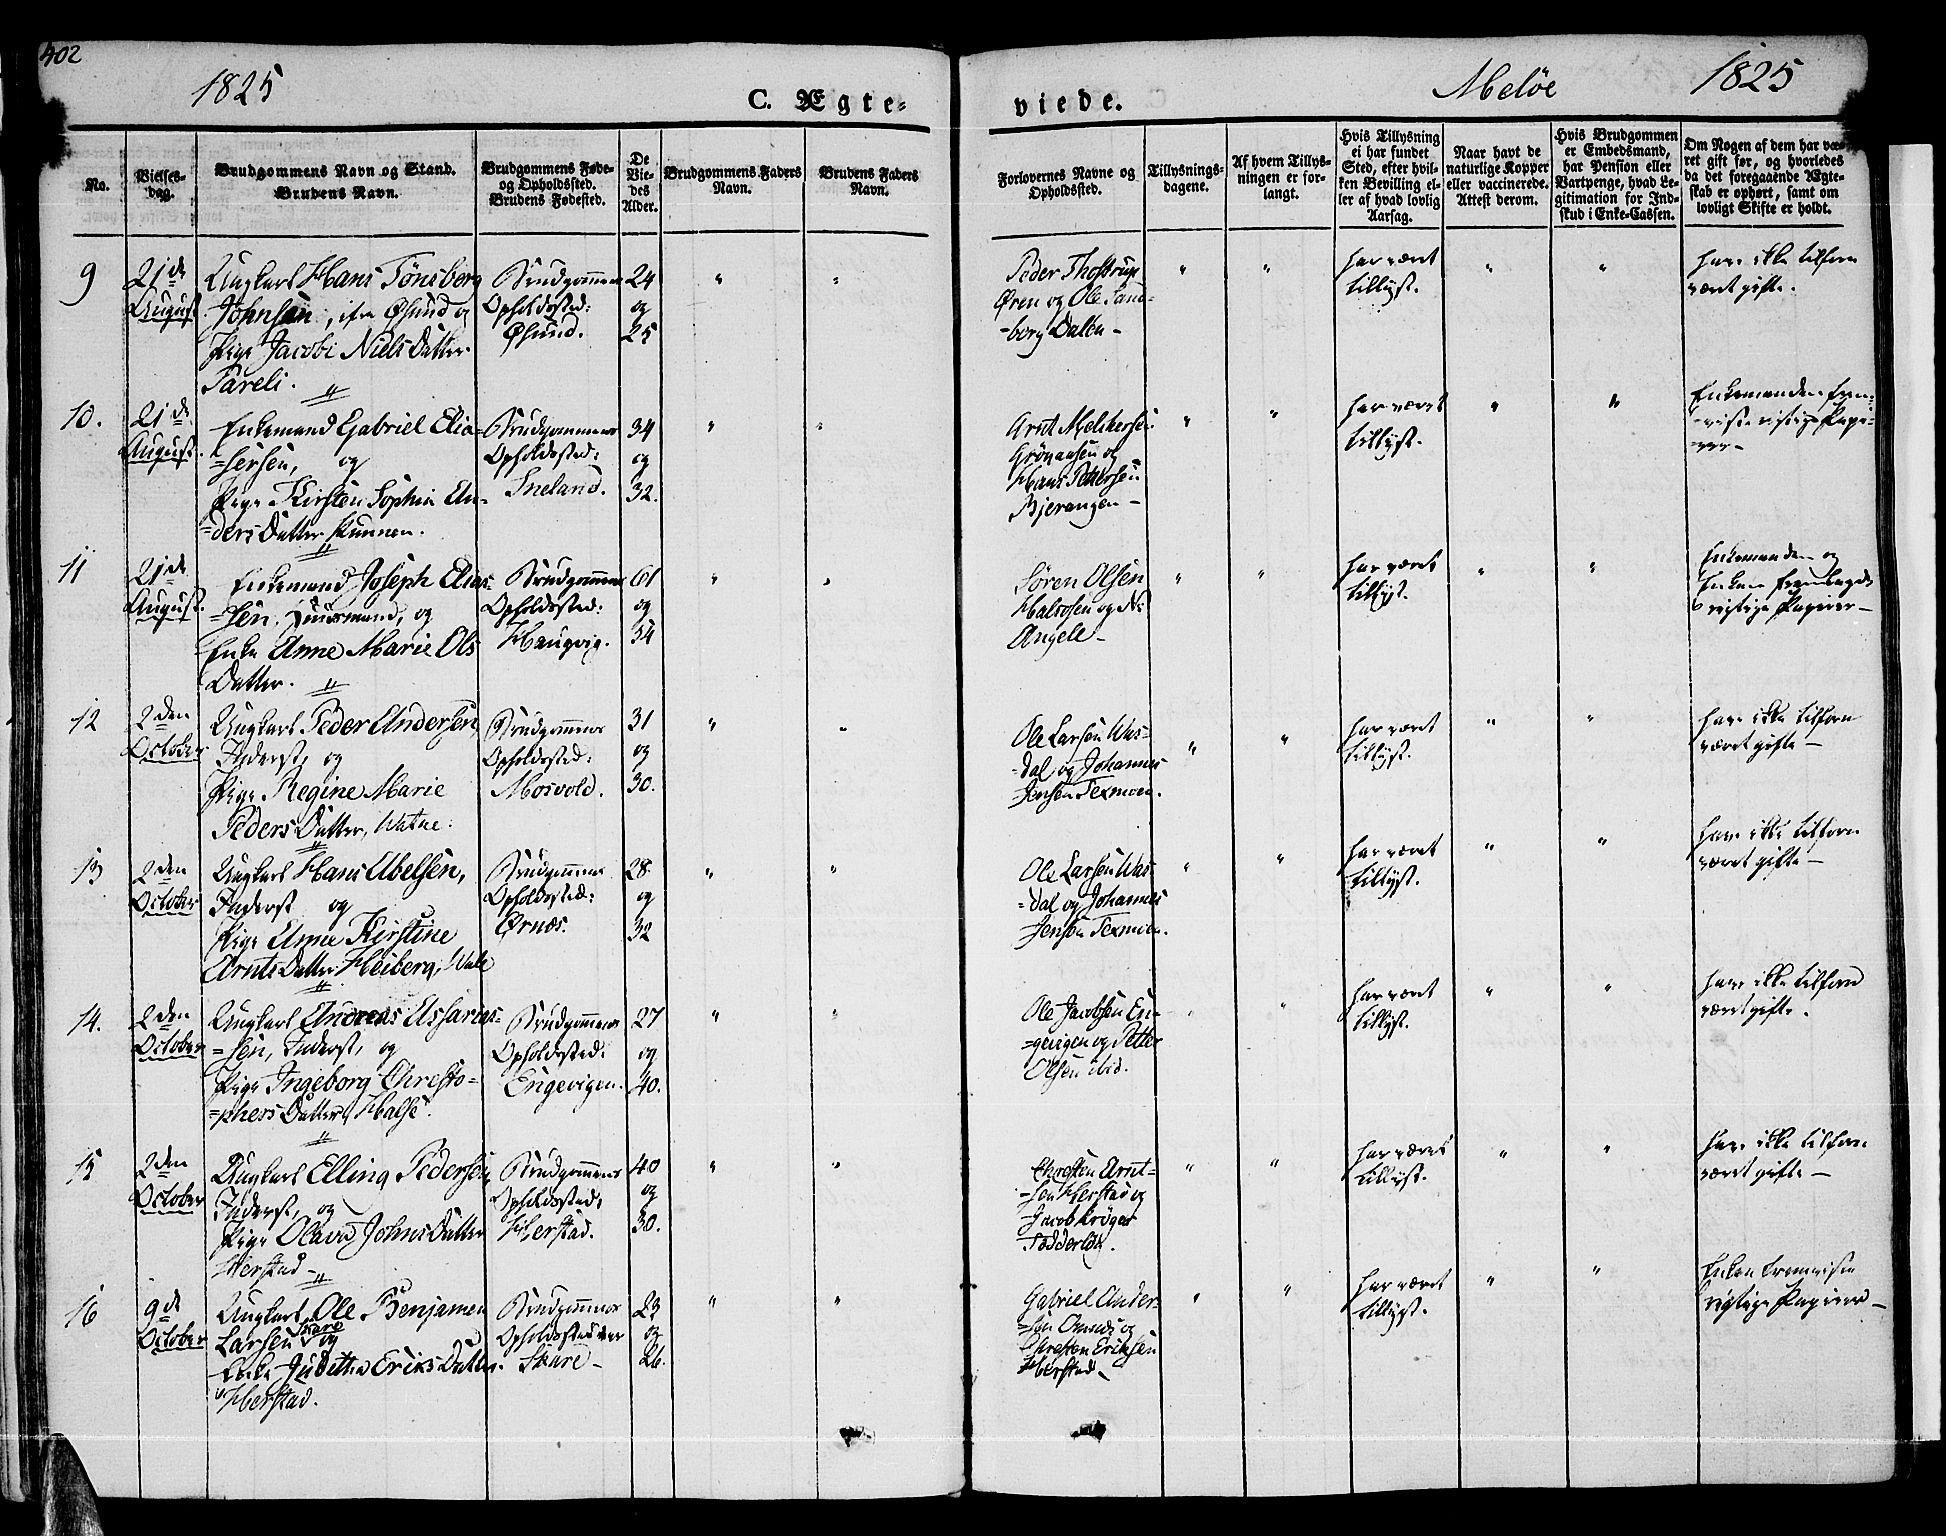 402
1825
C. Ægte-
viede.
Meløe
1825
No.
Vielses-
dag.
Brudgommens Navn og Stand.
Brudens Navn.
Brudgommens Føde-
og Opholdssted.
Brudens Fødested.
De
Vie-
des
Alder.
Brudgommens Faders
Navn.
Brudens Faders
Navn.
Forlovernes Navne og
Opholdssted.
Tillysnings-
dagene.
Af hvem Tillys-
ningen er for-
langt.
Hvis Tillysning
ei har fundet
Sted, efter hvil-
ken Bevilling el-
ler af hvad lovlig
Aarsag.
Naar havt de
naturlige Kopper
eller vaccinerede.
Attest derom.
Hvis Brudgommen
er Embedsmand,
har Pension eller
Vartpenge, hvad Le-
gitimation for Ind-
skud i Enke-Cassen.
Om Nogen af dem har væ-
ret gift før, og hvorledes
da det foregaaende Ægte-
skab er ophørt, samt om
lovligt Skifte er holdt.
9
21de
August
Ungkarl Hans Tønsberg
Johnsen, ifra Øsund og
Pige Jacobi Niels Datter
Tareli.
Brudgommens
Opholdssted:
Øsund.
24
og
25
Peder Thostrup
Øren og Ole Sand-
-borg Dalen-
har været
tillyst.
have ikke tilforn
været gifte.
10.
21de
August.
Enkemand Gabriel Elia-
=sersen, og
Pige Kirsten Sophia An-
=ders Datter Kunnen.
Brudgommens
Opholdssted:
Sneland.
34
og
32.
Arnt Melchersen
Grønaasen og
Hans Pettersen
Bjerangen-
har været
tillyst.
Enkemanden frem-
-viste rigtige Papi-
-rer-
11
21de
August.
Enkemand Joseph Elias-
=sen, Huusmand, og
Enke Anne Marie Ols
Datter.
Brudgommens
Opholdssted:
Haugvig.
61
og
54
Søren Olsen
Halvosen og N:
Angele-
har været
tillyst.
Enkemanden og
Enken frembragde
rigtige Papirer-
12
2den
October
Ungkarl Peder Andersen,
Inderst, og
Pige Regine Marie
Peders Datter, Watne.
Brudgommens
Opholdssted:
Mosvold.
31
og
30.
Ole Larsen Was-
-dal og Johannes
Jensen Texmoen.
har været
tillyst.
have ikke tilforn
været gifte-
13
2den
October
Ungkarl Hans Abelsen,
Inderst og
Pige Anne Kirstine
Arnts Datter Heiberg, Wale
Brudgommens
Opholdssted:
Ørnæs.
28
og
32
Ole Larsen Was-
-dal og Johannes
Jensen Texmoen.
har været
tillyst.
have ikke tilforn
været gifte-
14.
2den
October
Ungkarl Andreas Assarias-
=sen, Inderst, og
Pige Ingeborg Christo-
=phers Datter, Halse.
Brudgommens
Opholdssted:
Engevigen.
27
og
40.
Ole Jacobsen En-
=gevigen og Petter
Olsen ibid.
har været
tillyst.
have ikke tilforn
været gifte.
15
2den
October
Ungkarl Elling Pedersen,
Inderst, og
Pige Olava Johns Datter
Herstad-
Brudgommens
Opholdssted:
Herstad.
40
og
30.
Christen Arnt-
-sen Herstad og
Jacob Krøger
har været
tillyst.
have ikke tilforn
været gifte-
16
9de
October
Ungkarl Ole Benjamin
Larsen Skare og
Enke Juditha Eriks Datter
Herstad.
Brudgommens
Opholdssted er
Skare-
23
og
26.
Gabriel Ander-
=sen Ornæs og
Christen Eriksen
Herstad-
har været
tillyst.
Enken fremviste
rigtige Papirer-